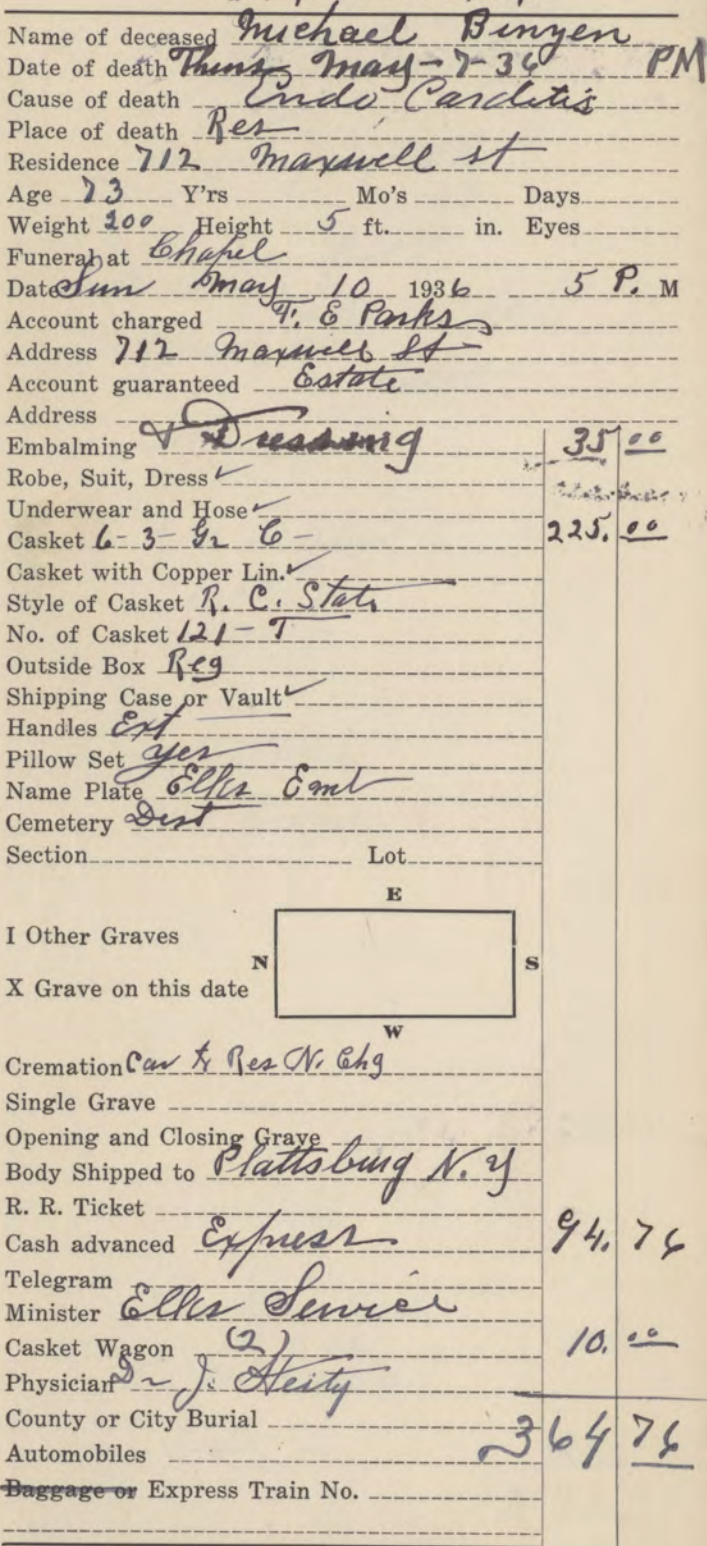 Name of deceased Michael Binyen
Date of death Thurs May - 7 - 36 PM
Cause of death Endo Carditis
Place of death Res
Residence 712 Maxwell st
Age 73 Y'rs Mo's Days
Weight 200 Height 5 ft. in. Eyes
Funeral at Chapel
Date Sun May 10 1936 5 P. M
Account charged F. E Parks
Address 712 Maxwell St
Account guaranteed Estate
Address
Embalming & Dressing 35 00
Robe, Suit, Dress ✓
Underwear and Hose ✓
Casket 6-3- Gr C - 225. 00
Casket with Copper Lin. ✓
Style of Casket R. C. State
No. of Casket 121 - T
Outside Box Reg
Shipping Case or Vault ✓
Handles Ext
Pillow Set yes
Name Plate Elks Eml
Cemetery
Section Lot
E
I Other Graves
N S
X Grave on this date
W
Cremation Car to Res N. Chg
Single Grave
Opening and Closing Grave
Body Shipped to Plattsburg N. Y
R. R. Ticket
Cash advanced Express 94. 76
Telegram
Minister Elks Service
Casket Wagon (2) 10. 00
Physician Dr J.
County or City Burial 364 76
Automobiles
Baggage or Express Train No.